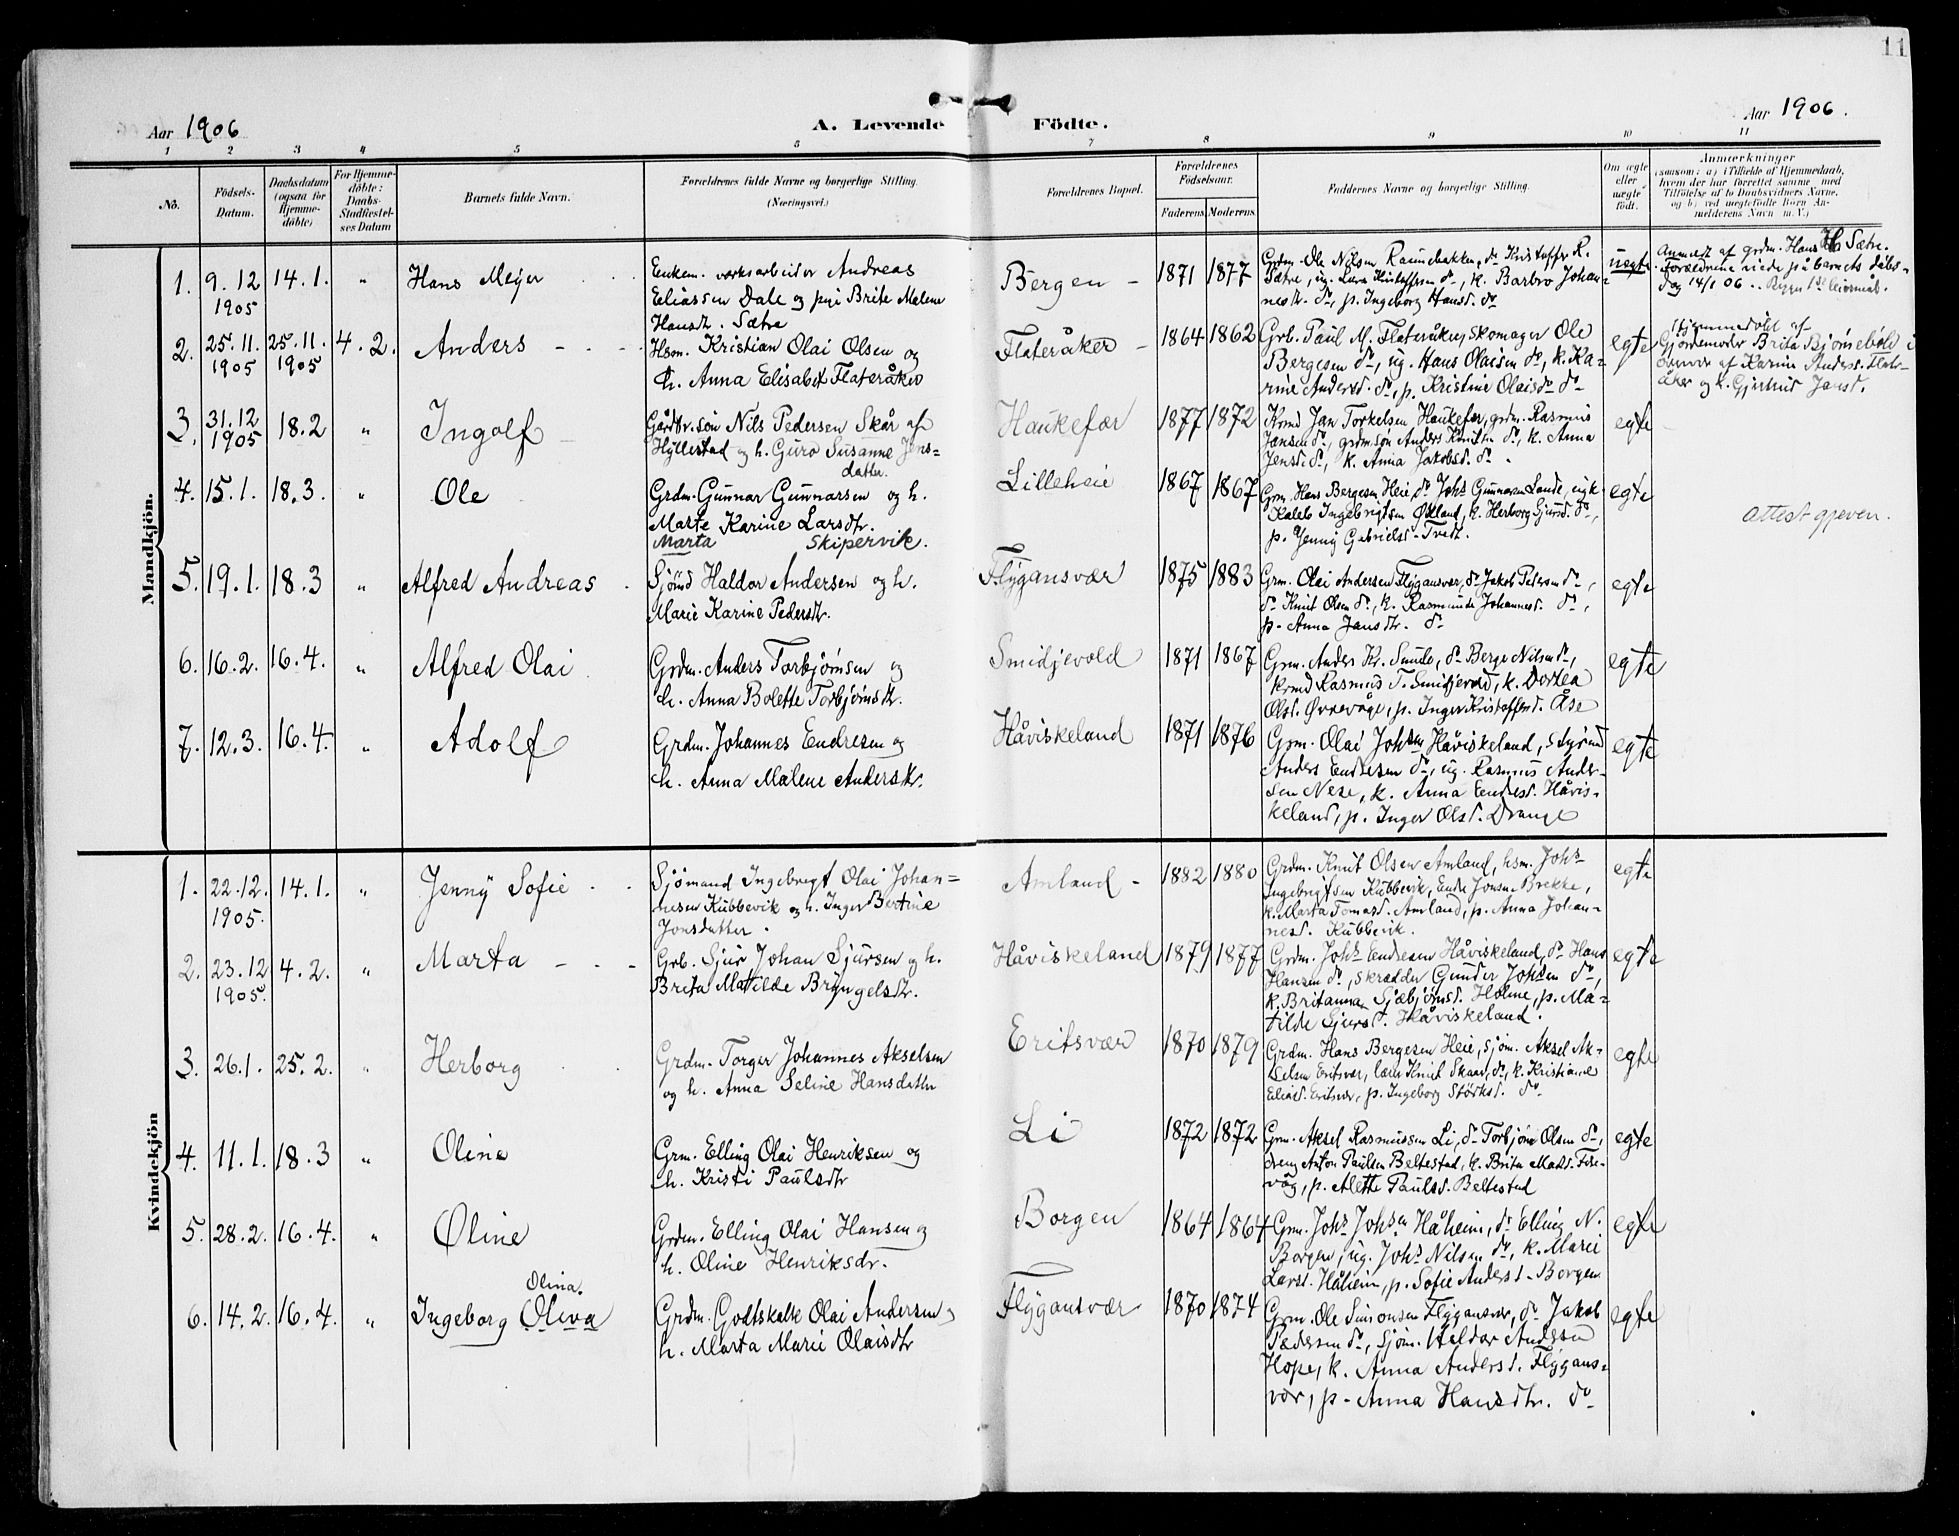 11
Aar 1906
A. Levende Födte.
Aar 1906.
1 2 3 4 5 6 7 8 9 10 11
No.
Födsels-
Datum.
Daabsdatum
(ogsaa for
Hjemme-
döbte)
For Hjemme-
döbte:
Daabs-
Stadfæstel-
ses Datum
Barnets fulde Navn.
Forældrenes fulde Navne og borgerlige Stilling.
(Næringsvei.)
Forældrenes Bopæl.
Forældrenes
Födselsaar.
Faderens. Moderens.
Faddernes Navne og borgerlige Stilling.
Om ægte
eller
uægte
födt.
Anmærkninger
(saasom: a) i Tilfælde af Hjemmedaab,
hvem der har forrettet samme med
Tilföielse af to Daabsvidners Navne.
og b) ved uægtefödte Börn An-
melderens Navn m. V.)
Mandkjön.
1. 9.12 1905 14.1. " Hans Mejer
Enkem. verksarbeider Andreas
Eliassen Dale og pige Brite Malene
Hansdt. Sætre
Bergen - 1871 1877
Grdm. Ole Nilsen Raunebakken, do Kristoffer R.
Sætre, ug. Lars Kristoffersen do, k. Barbro Johan-
nesdt. do, p. Ingeborg Hansd. do
uegte.
Anmeldt af grdm. Hans H. Sætre.
Forældrene viede på barnets dåbs-
dag 14/1 06.
2. 25.11. 1905 25.11. 1905 4.2. Anders
Hsm. Kristian Olai Olsen og
h. Anna Elisabet Flateråker
Flateråker - 1864 1862
Grb. Paul M. Flateråker, skomager Ole
Bergesen do, ug. Hans Olaisen do, k. Ka-
rine Andersd. do, p. Kristine Olaisd. do
egte
Hjemmedöbt af
Gjordemoder Brita Bjørnebøle i
overvær af Karine Andersd. Flate-
åker og k. Gjertrud Jansd.
3. 31.12 1905 18.2 " Ingolf
Gårdbr.søn Nils Pedersen Skår af
Hyllestad og h. Guro Susanne Jens-
datter.
Haukefær 1877 1872
Krmd Jan Torkelsen Haukefær, grdm. Rasmus
Jansen do, grdm.søn Anders Knutsen do, k. Anna
Jensd. do, k. Anna Jakobsd. do.
egte
4. 15.1. 18.3. " Ole
Grdm. Gunnar Gunnarsen og h.
Marte Karine Larsdtr.
Marta Skipervik.
Lilleheie 1867 1867
Grm. Hans Bergesen Heie, do Johs Gunnarsen Lande, ugk.
Kaleb Ingebrigtsen Økland, k. Herborg Sjursd. do,
p. Jenny Gabrielsd. Tvedt.
egte
Attest gjeven.
5. 19.1. 18.3 " Alfred Andreas
Sjömd Haldor Andersen og h.
Marie Karine Pedersdtr.
Flygansvær 1875 1883
Grm. Olai Andersen Flygansvær, do Jakob Pedersen do,
do Knut Olsen do, k. Rasmunde Johannesd. do,
p. Anna Jansdtr. do
egte
6. 16.2. 16.4. " Alfred Olai
Grdm. Anders Torbjörnsen og
h. Anna Bolette Torbjörnsdtr.
Smidjevold 1871 1867
Grm. Anders Kr. Smule, do Berge Nilsen do,
krmd Rasmus T. Smidjevold, k. Dortea
Olsd. Øvrevåge, p. Inger Kristoffersd. Åse
egte
7. 12.3. 16.4. " Adolf
Grdm. Johannes Endresen og
h. Anna Malene Andersdtr.
Håviskeland 1871 1876
Grm. Olai Johsen Håviskeland, styrmd
Anders Endresen do, ug. Rasmus Ander-
sen Nese, k. Anna Endresd. Håvis-
keland, p. Inger Olsd. Drange
egte
Kvindekjön
1. 22.12. 1905. 14.1. " Jenny Sofie
Sjömand Ingebregt Olai Johan-
nesen Kubbevik og h. Inger Bertine
Jonsdatter.
Amland - 1882 1880
Grdm. Knut Olsen Amland, hsm. Johs
Ingebrigtsen Kubbevik, Endre Jonsen Brekke,
k. Marta Tomasd. Amland, p. Anna Johan-
nesd. Kubbevik.
egte
2. 23.12 1905. 4.2. " Marta
Grb. Sjur Johan Sjursen og h.
Brita Matilde Bryngelsdtr.
Håviskeland 1879 1877
Grdm. Johs Endresen Håviskeland, do Hans
Hansen do, skrædder Gunder Johsen do,
k. Britanna Sjæbjörnsd. Holme, p. Ma-
tilde Sjursd. Håviskeland.
egte
3. 26.1. 25.2. " Herborg
Grdm. Torger Johannes Akselsen
og h. Anna Seline Hansdatter
Eritsvær 1870 1879
Grdm. Hans Bergesen Heie, sjöm. Aksel Ak-
selsen Eritsvær, lærer Knut Skaar, do, k. Kristiane
Eliasd. Eritsvær, p. Ingeborg Størksd. do
egte
4. 11.1. 18.3 " Oline
Grm. Elling Olai Henriksen og
h. Kristi Paulsdtr
Li 1872 1872
Grm. Aksel Rasmussen Li, do Torbjörn Olsen do,
dreng Anton Paulsen Beltestad, k. Brita Madsd. Fire-
våg, p. Alette Paulsd. Beltestad
egte
5. 28.2. 16.4. " Oline
Grdm. Elling Olai Hansen og
h. Oline Henriksdr.
Borgen 1864 1864
Grm. Johs Johsen Håheim, do Elling N.
Borgen, ug. Johs Nilsen do, k. Marie
Larsd. Håheim, p. Sofie Andersd. Borgen
egte
6. 14.2. 16.4. " Olina.
Ingeborg Oliva
Grdm. Godtskalk Olai Andersen og
h. Marta Marie Olaisdtr
Flygansvær 1870 1874
Grm. Ole Simonsen Flygansvær, do Jakob
Pedersen do, sjöm. Haldor Andersen
Hope, k. Anna Andersd. Flygans-
vær, p. Anna Hansdtr. do
egte